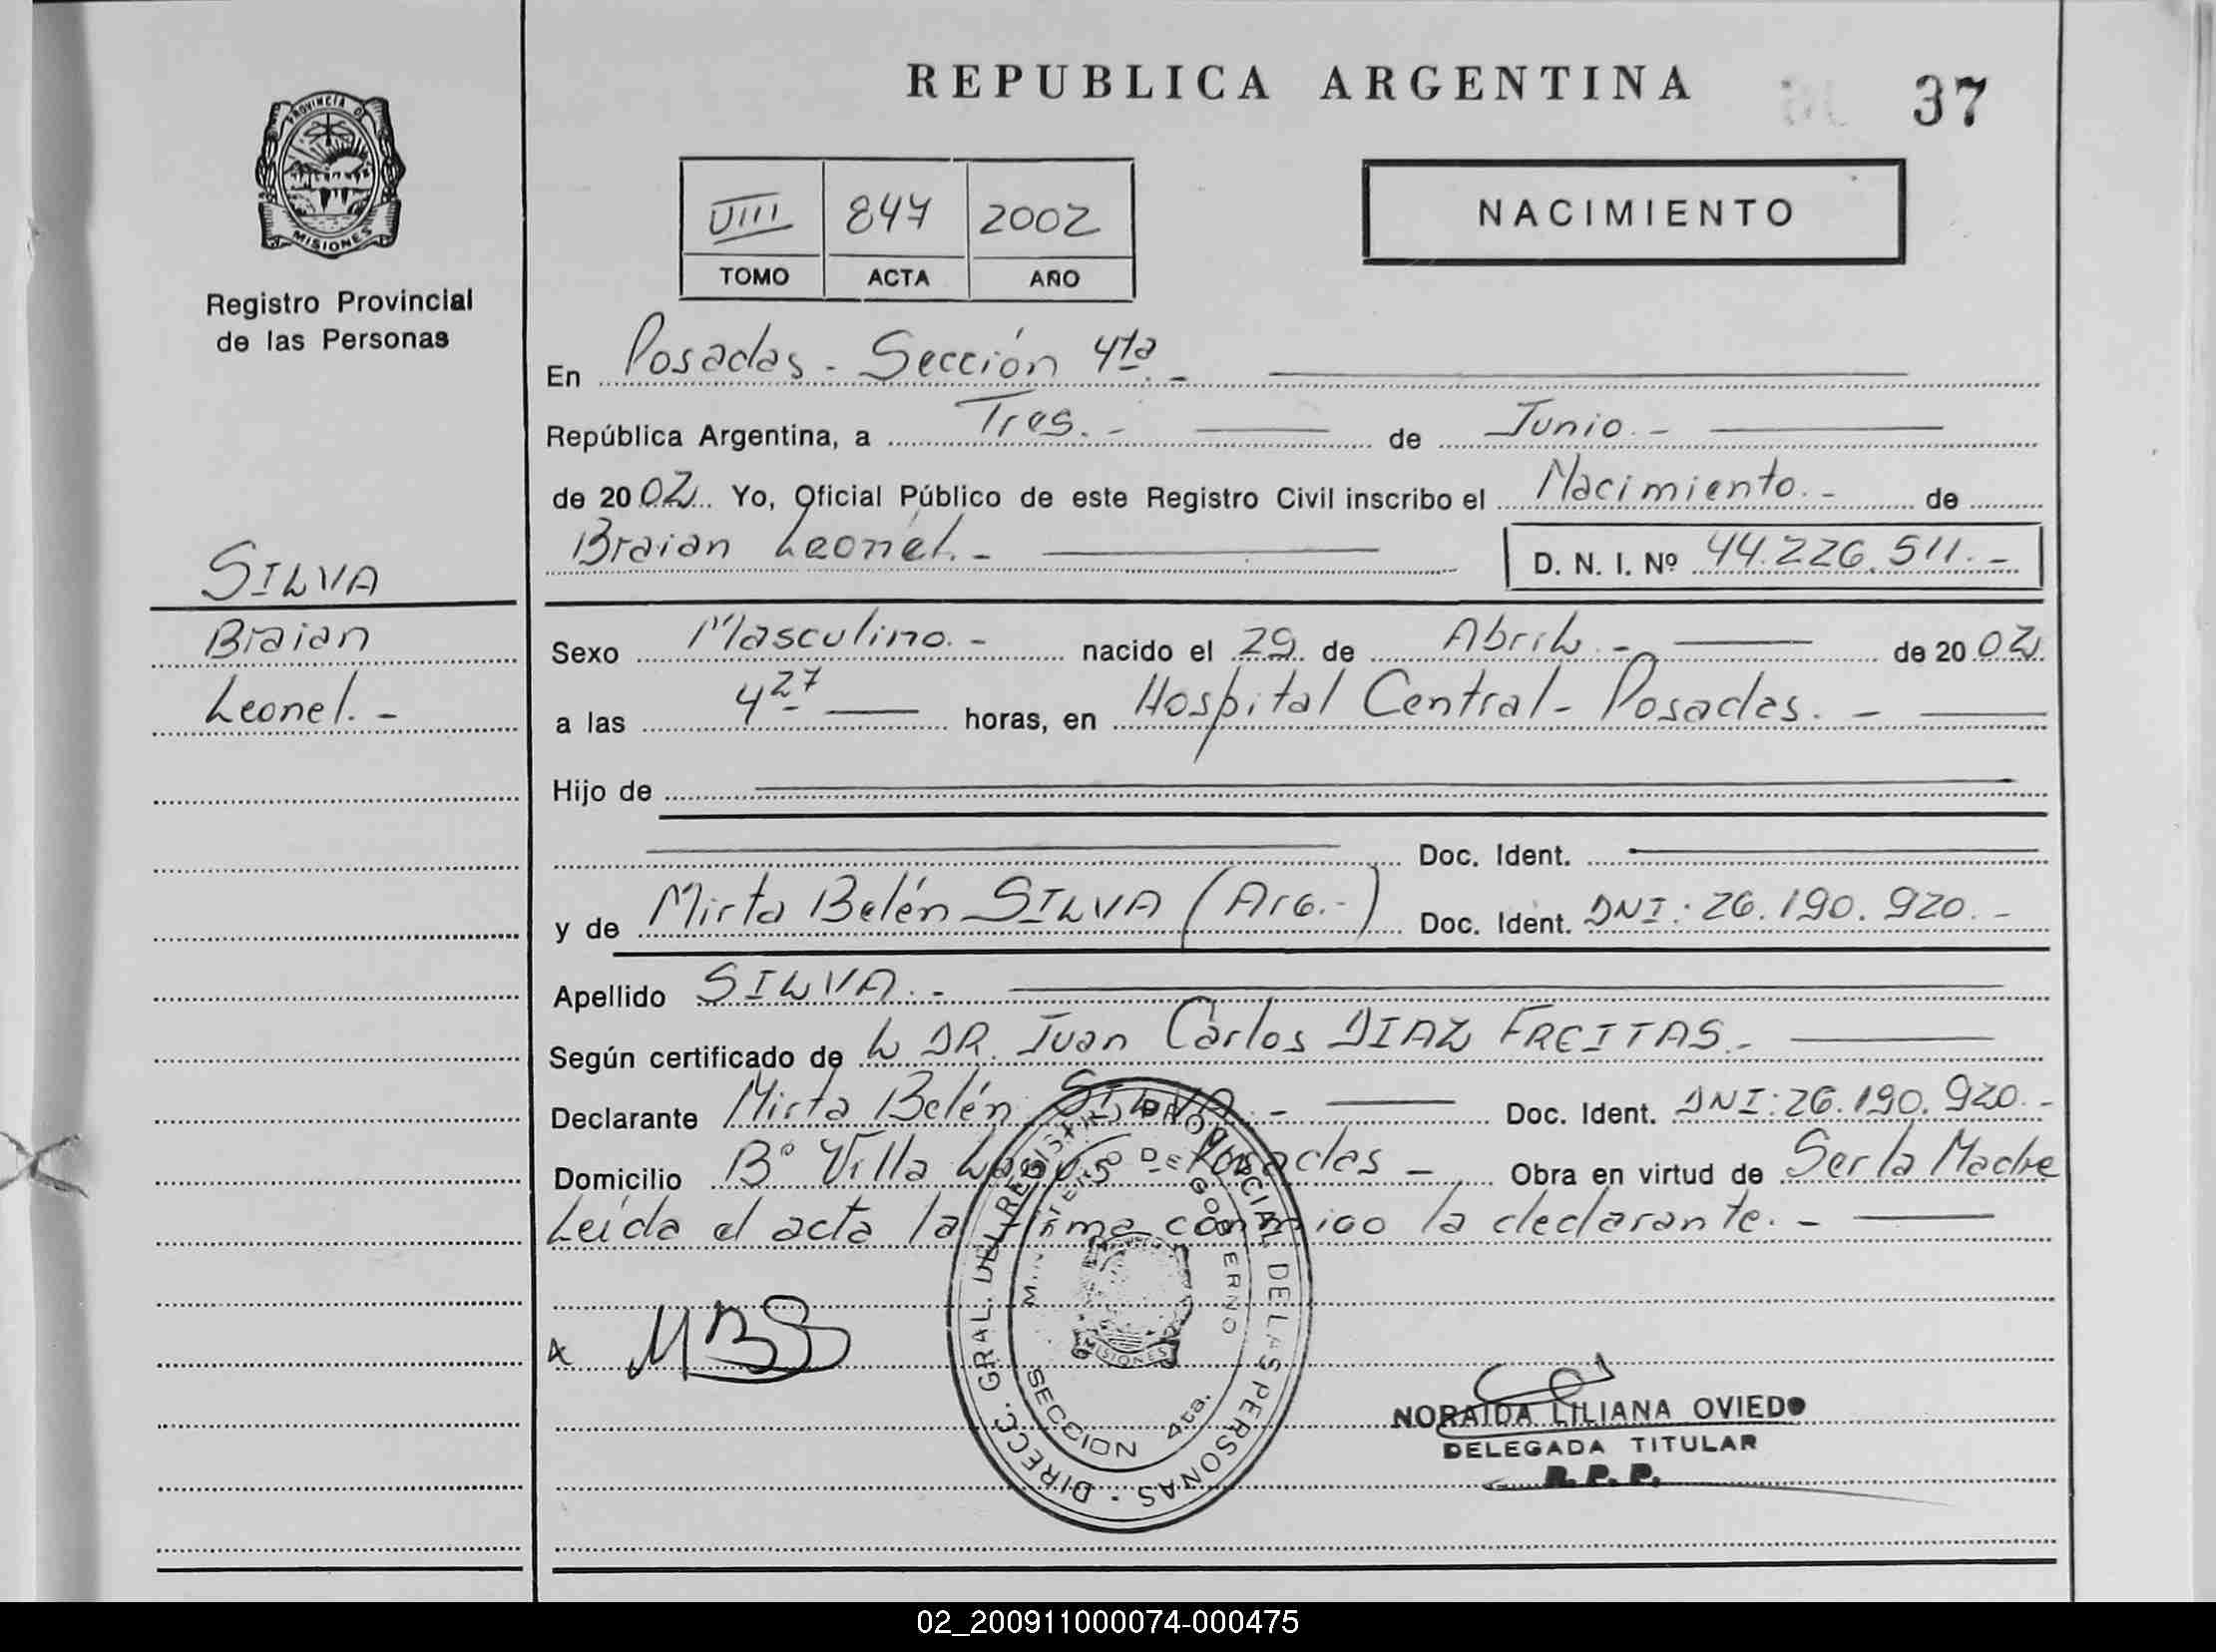 REPUBLICA ARGENTINA
37
PROVINCIA DE
MISIONES
Registro Provincial
de las Personas
VIII 847 2002
TOMO ACTA AÑO
NACIMIENTO
En Posadas - Sección 4ta. -
República Argentina, a Tres. - de Junio. -
de 2002. Yo, Oficial Público de este Registro Civil inscribo el Nacimiento. - de
Braian Leonel. -
D. N. I. Nº 44.226.511. -
SILVA
Braian
Leonel. -
Sexo Masculino. - nacido el 29 de Abril. - de 2002
a las 4 27 horas, en Hospital Central - Posadas. -
Hijo de
Doc. Ident.
y de Mirta Belén SILVA (Arg.-) Doc. Ident. DNI: 26.190.920. -
Apellido SILVA. -
Según certificado de L DR. Juan Carlos DIAZ FREITAS. -
Declarante Mirta Belén SILVA. - Doc. Ident. DNI: 26.190.920. -
Domicilio Bº Villa - Posadas - Obra en virtud de Ser la Madre
Leída el acta la firma conmigo la declarante. -
MBS
DIRECC. GRAL. DEL REGISTRO PROVINCIAL DE LAS PERSONAS
MINISTERIO DE GOBIERNO
MISIONES
SECCION 4ta.
NORAIDA LILIANA OVIEDO
DELEGADA TITULAR
R. P. P.
02_200911000074-000475